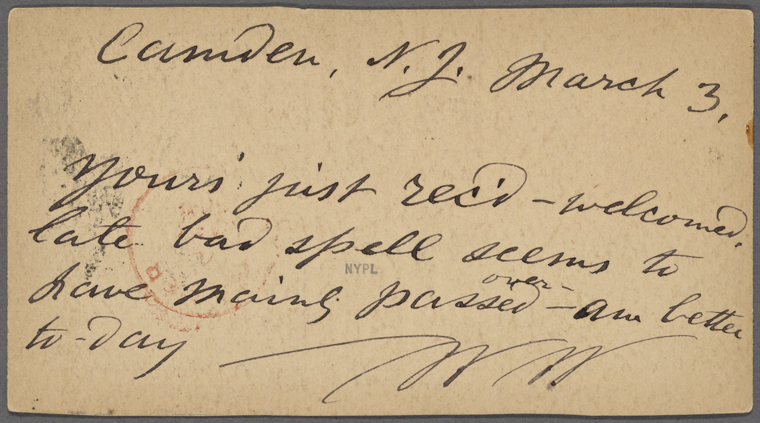 Camden, N.J. March 3,
Yours just rec'd – welcomed,
late bad spell seems to
NYPL
have mainly passed over – am better
to-day
W W